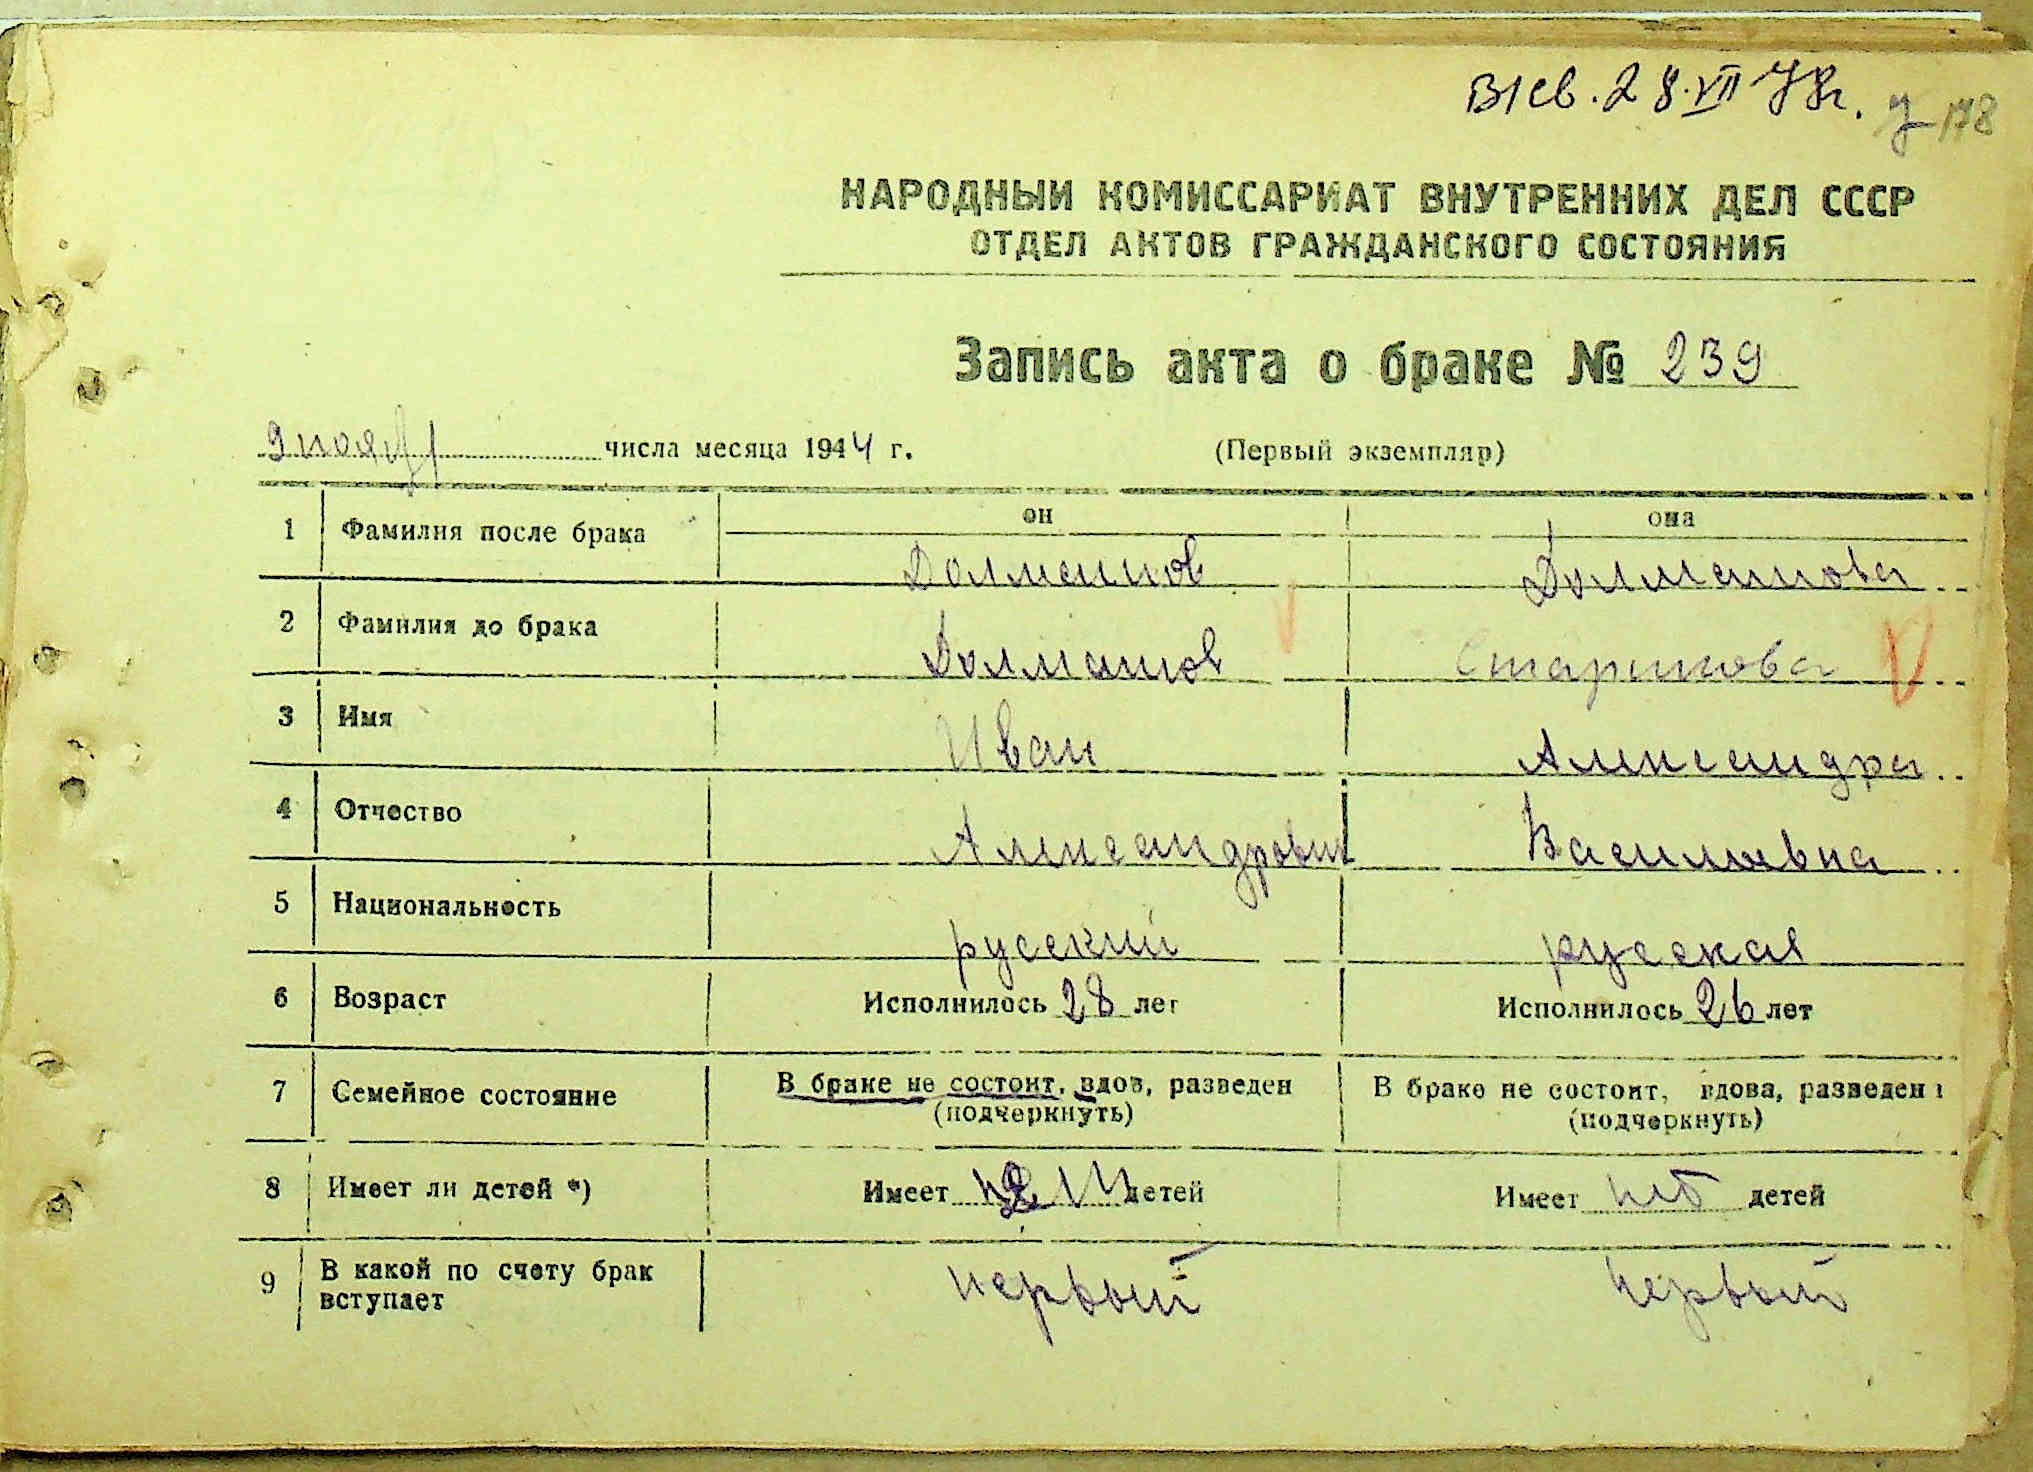 28.VII
178
НАРОДНЫЙ КОМИССАРИАТ ВНУТРЕННИХ ДЕЛ СССР
ОТДЕЛ АКТОВ ГРАЖДАНСКОГО СОСТОЯНИЯ
Запись акта о браке № 239
9 числа месяца 1944 г. (Первый экземпляр)
он она
1 Фамилия после брака
2 Фамилия до брака
3 Имя Иван Александра
4 Отчество Александрович Васильевна
5 Национальность русский русская
6 Возраст Исполнилось 28 лет Исполнилось 26 лет
7 Семейное состояние В браке не состоит, вдов, разведен В браке не состоит, вдова, разведен
(подчеркнуть) (подчеркнуть)
8 Имеет ли детей *) Имеет детей Имеет нет детей
9 В какой по счету брак
вступает первый первый